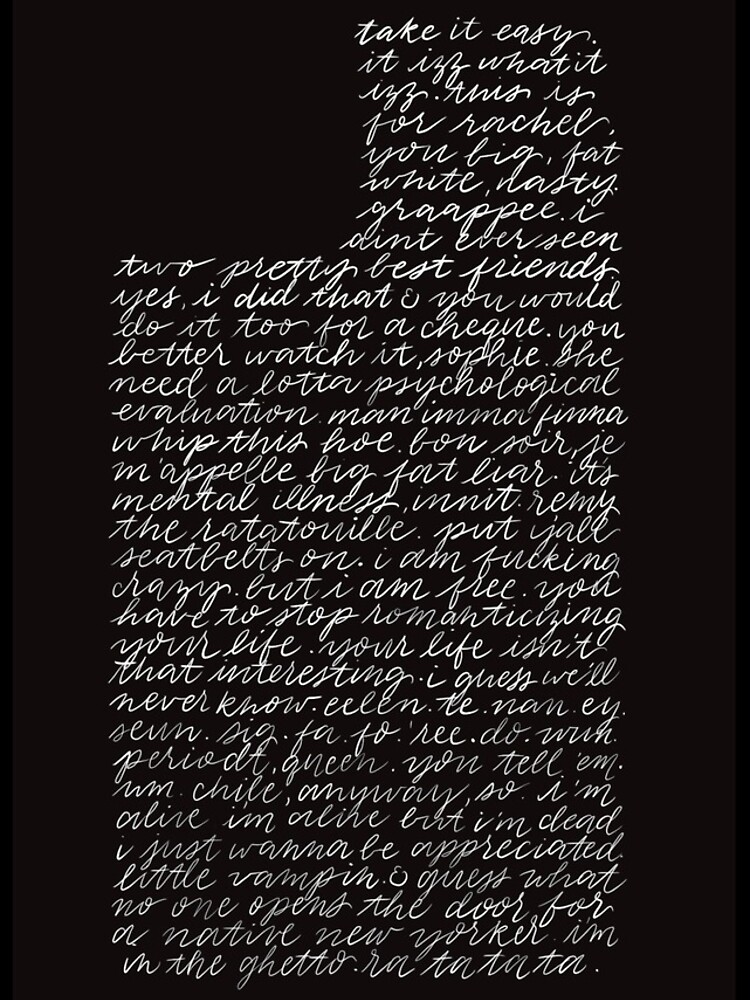 take it easy.
it izz what it
izz. this is
for rachel,
you big, fat
white, nasty.
graappee. i
aint ever seen
two pretty best friends.
yes, i did that & you would
do it too for a cheque. you
better watch it, sophie. she
need a lotta psychological
evaluation. man imma finna
whip this hoe. bon soir, je
m'appelle big fat liar. its
mental illness, innit. remy
the ratatouille. put y'all
seatbelts on. i am fucking
crazy. but i am free. you
have to stop romanticizing
your life. your life isn't
that interesting. i guess we'll
never know. eelen. te. nan. ey.
seun. sig. fa. fo. 'ree. do. wun.
periodt, queen. you tell 'em.
um. chile, anyway, so. i'm
alive im alive but i'm dead
i just wanna be appreciated.
little vampin. & guess what
no one opens the door for
a native new yorker. im
in the ghetto. ra ta ta ta.